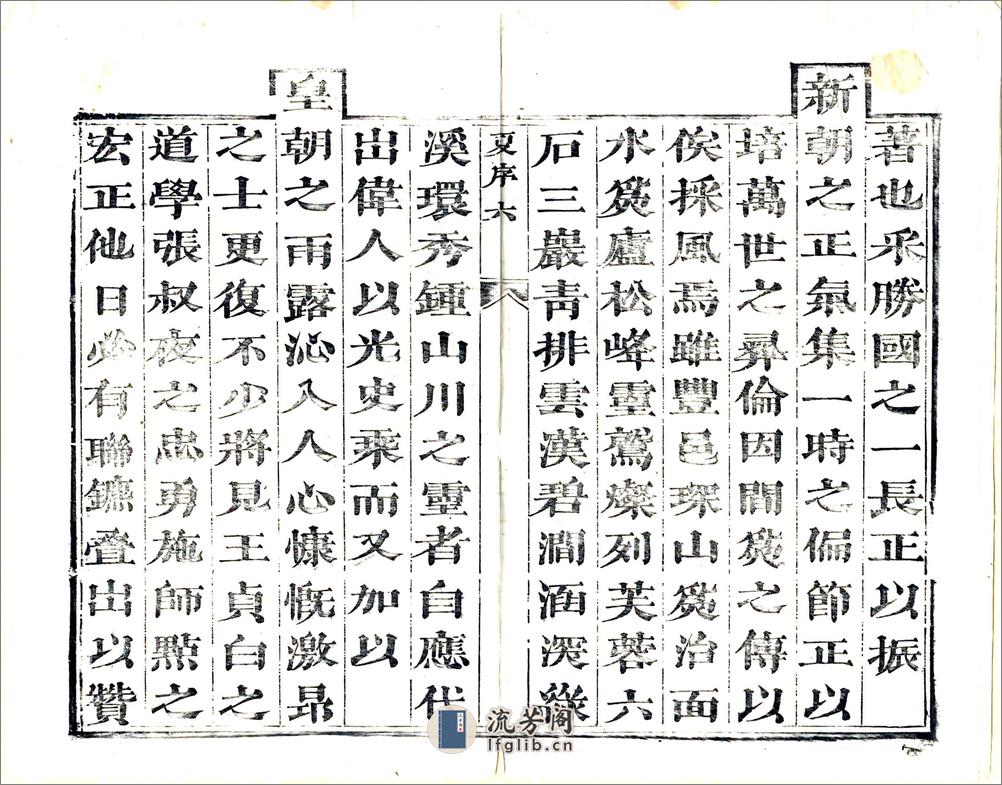 著也采勝國之一長正以振
新朝之正氣集一時之偏節正以
培萬世之彞倫因間爰之傳以
俟採風焉雖豐邑琛山爰治面
水爰廬松峰靈鷲燦列芙蓉六
石三巖靑排雲漢碧澗涵深綠
夏序 六
溪環秀鍾山川之靈者自應代
出偉人以光史乘而又加以
皇朝之雨露沁入人心慷慨激昻
之士更復不少將見王貞白之
道學張叔夜之忠勇施師點之
宏正他日必有聯鑣疊出以贊
流芳阁
lfglib.cn